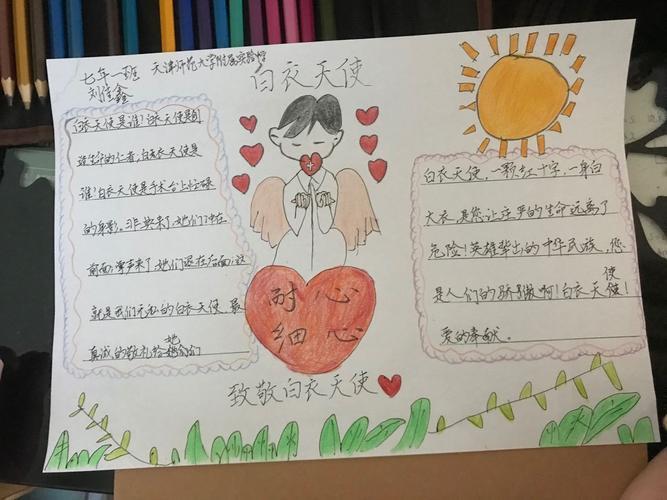 七年一班 天津师范大学附属实验中学
刘佳鑫
白衣天使
白衣天使是谁?白衣天使是创
造生命的仁者,白衣天使是
谁?白衣天使是手术台上忙碌
的身影。非典来了,她们冲在
前面;掌声来了,她们退在后面;这
就是我们无私的白衣天使,最
真诚的敬礼给她们
白衣天使,一颗红十字,一身白
大衣,是您让庄严的生命远离了
危险!英雄辈出的中华民族,您
是人们的骄傲啊!白衣天使!
爱的奉献。
耐心
细心
致敬白衣天使